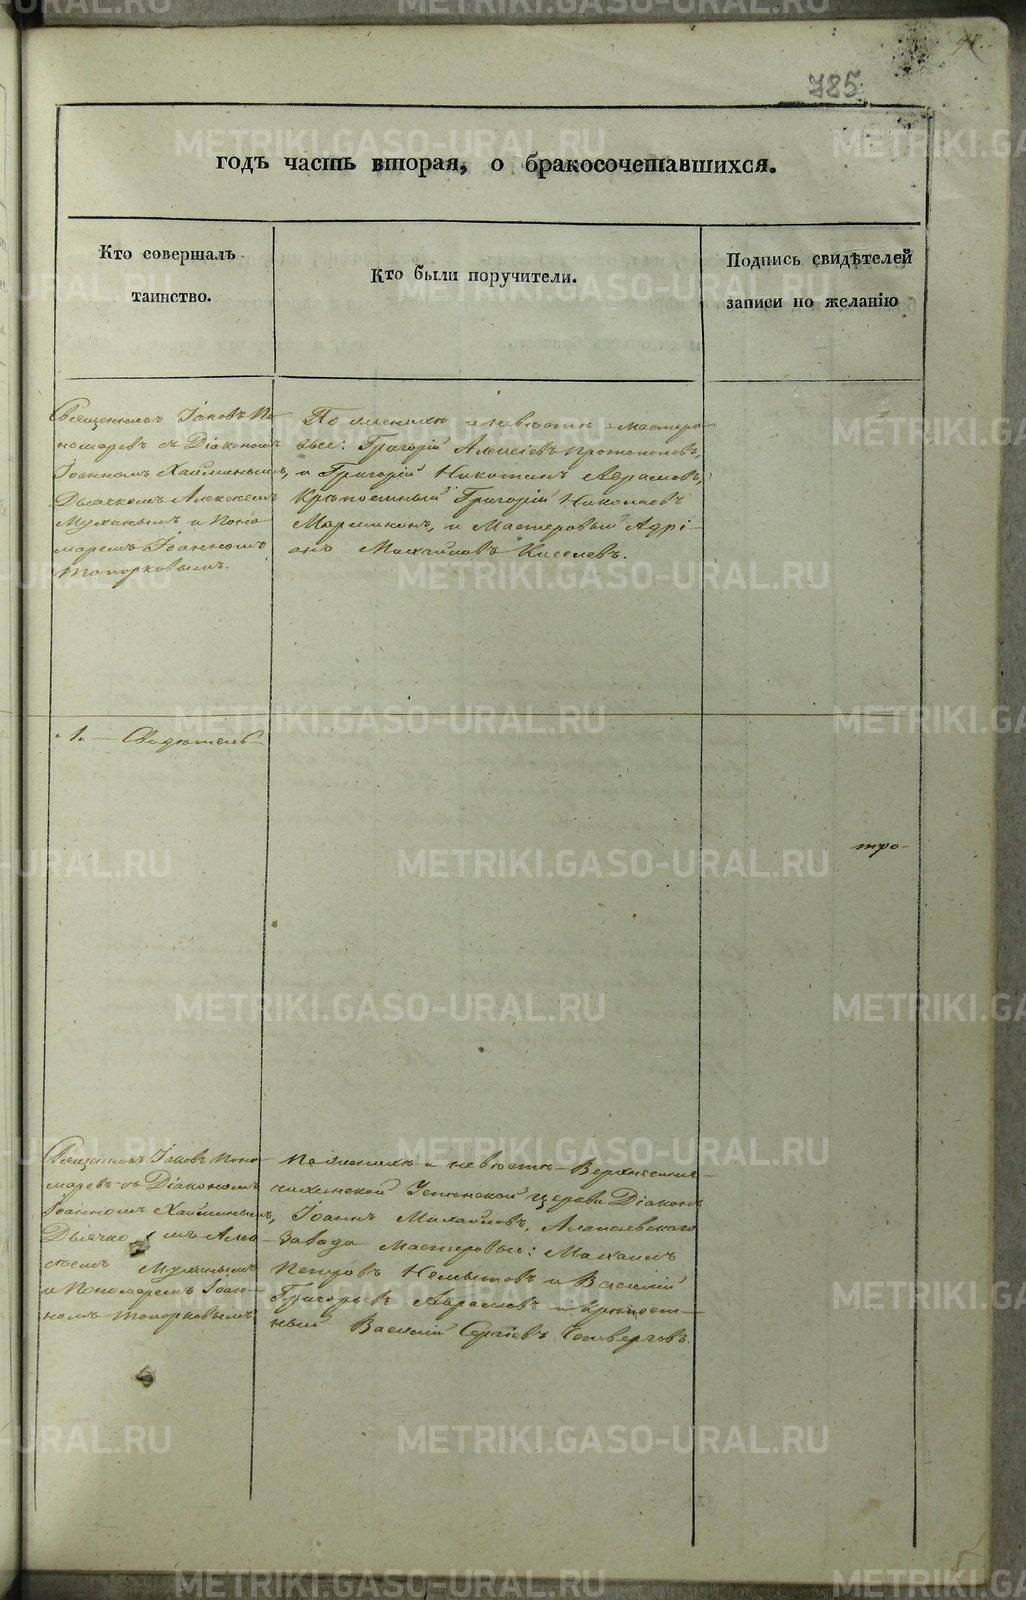 785
97.
годъ часть вторая, о бракосочетавшихся.
Кто совершалъ
таинство.
Кто были поручители.
Подпись свидѣтелей
записи по желанію
Священникъ Іаковъ По
номаревъ съ Діакономъ
Іоанномъ Хайминымъ,
Дьячкомъ Алексѣемъ
Мухинымъ и Поно
маремъ Іоанномъ
Топорковымъ.
По женихѣ и невѣстѣ - мастеро
вые: Григорій Алексіевъ Протопоповъ,
и Григорій Никитинъ Абрамовъ,
Крѣпостный Григорій Николаевъ
и Мастеровый Адрі-
анъ Михайловъ Киселевъ.
1. — Свидѣтель-
тро-
Священникъ Іаковъ Поно-
маревъ съ Діакономъ
Іоанномъ Хайминымъ,
Дьячкомъ Алек-
сѣемъ Мухинымъ
и Пономаремъ Іоан-
номъ Топорковымъ
По женихѣ и невѣстѣ - Верхнесиня-
чихинской Успенской церкви Діаконъ
Іоаннъ Михайловъ, Алапаевскаго
Завода Мастеровые: Максимъ
Петровъ Немытовъ и Василій
Григорьевъ Абрамовъ и Крѣпост-
ный Василій Сергіевъ Четверговъ.
METRIKI.GASO-URAL.RU